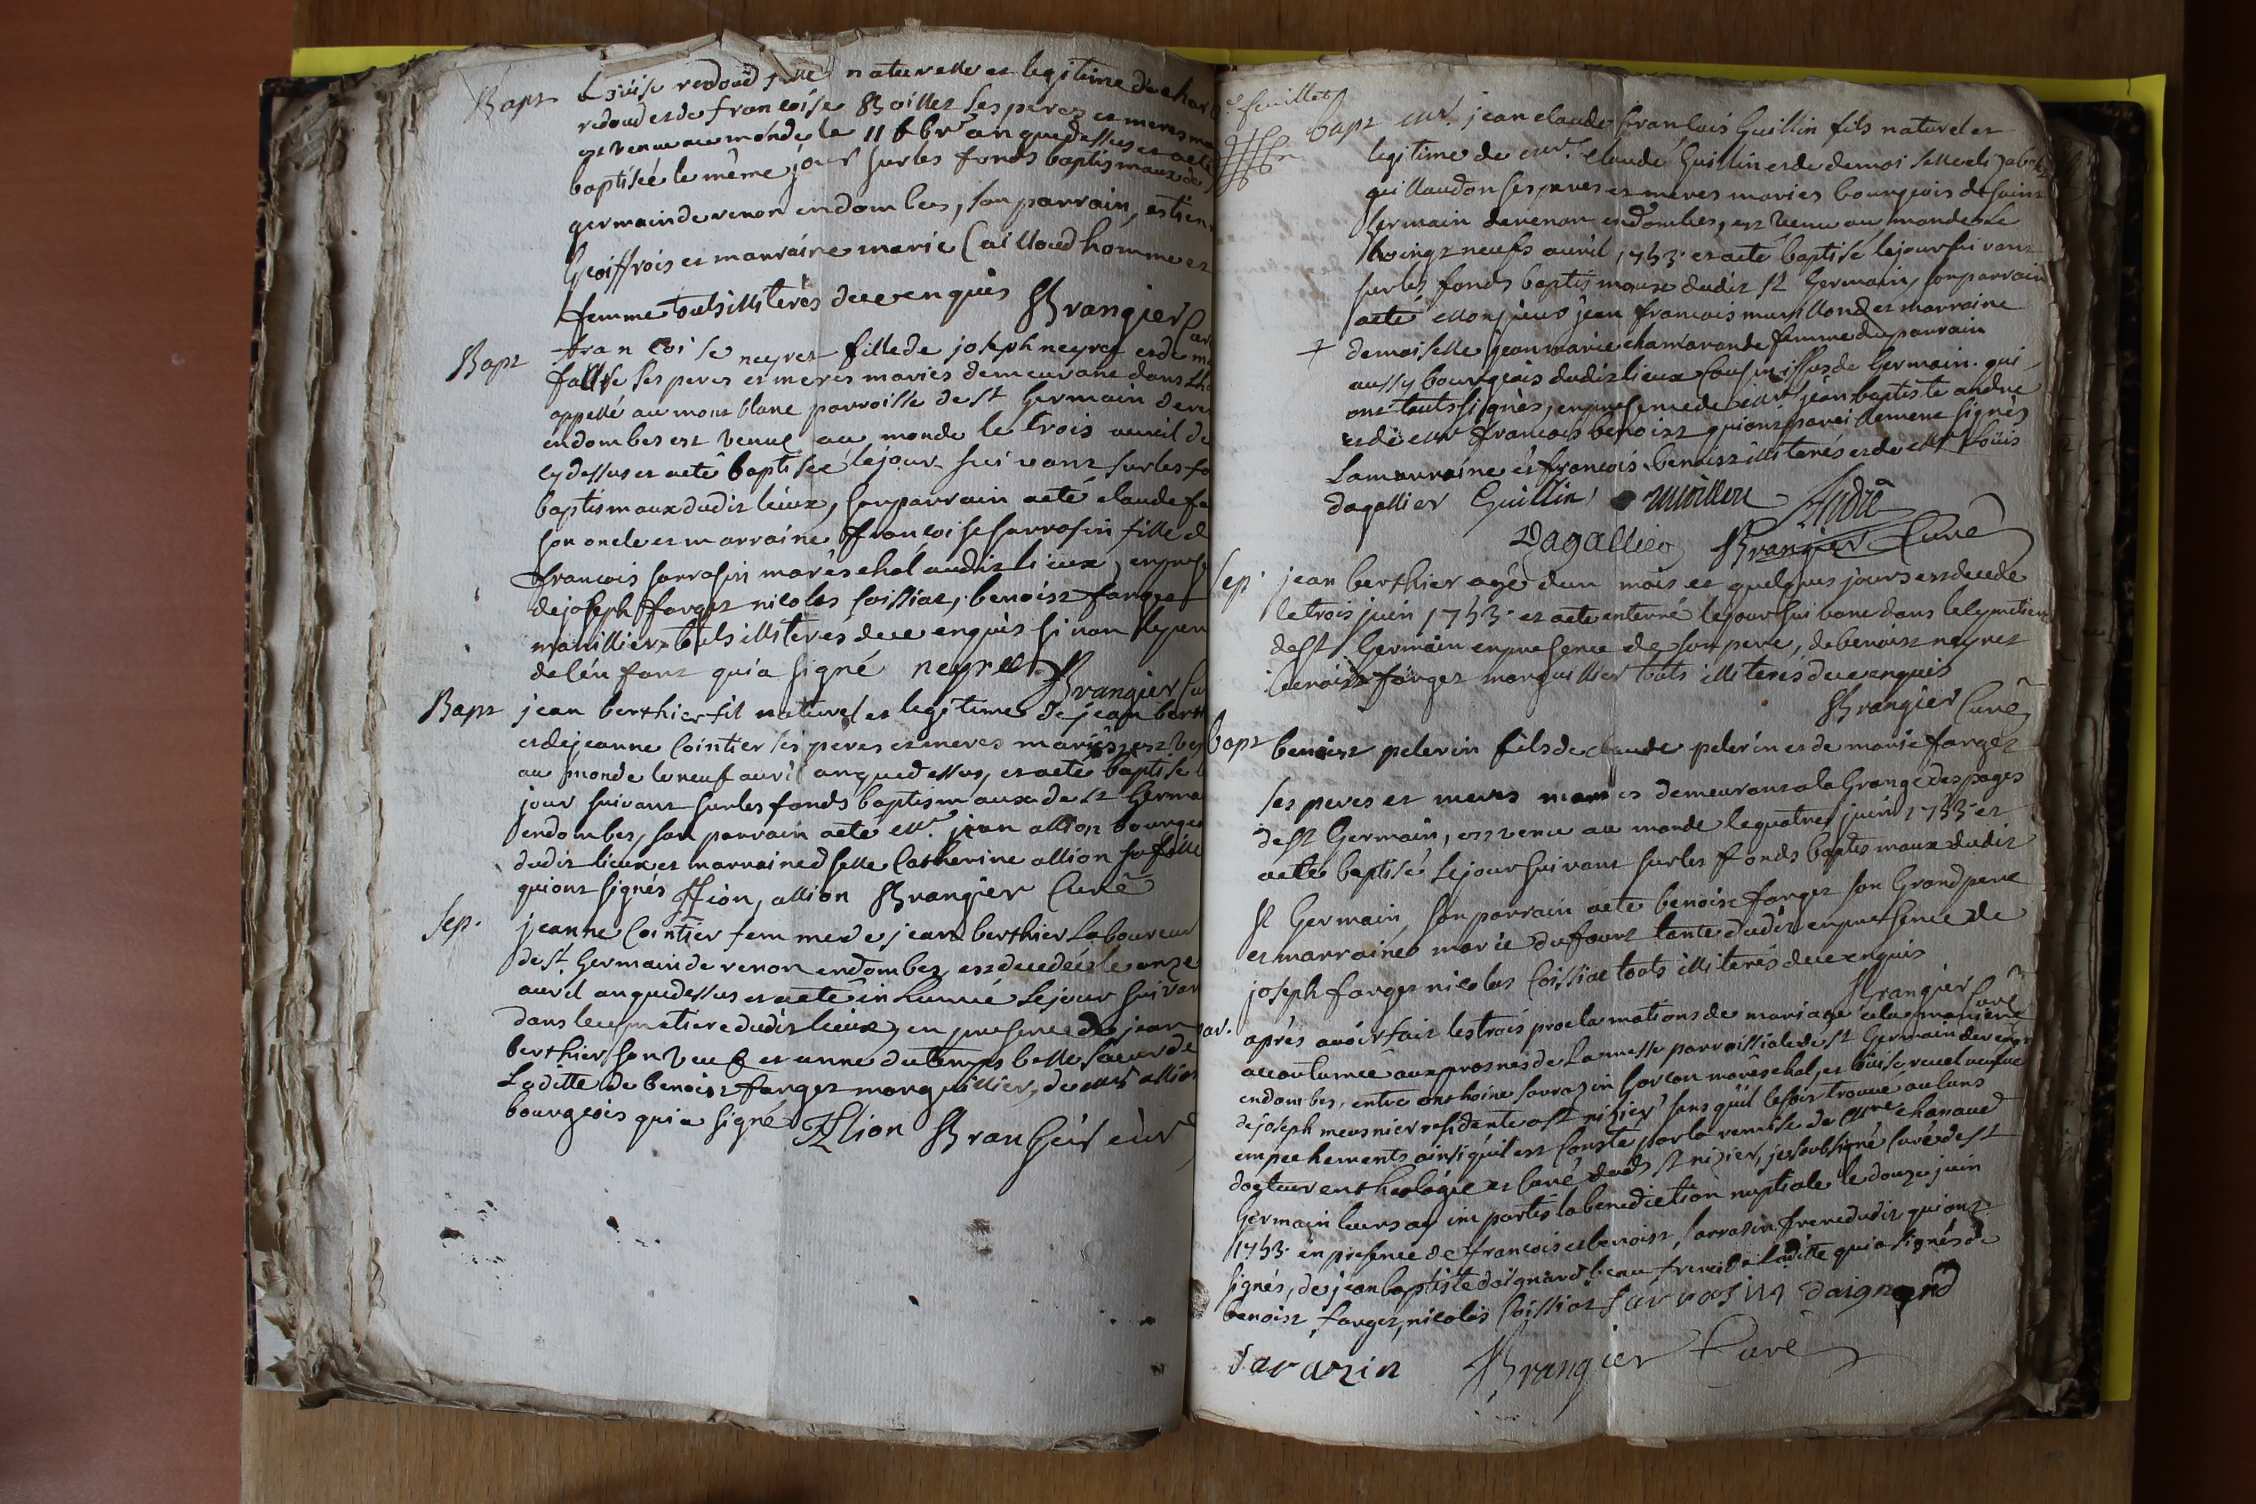 Bapt Louise redoud fille naturelle et legitime de char
redoud et de francoise Boillet ses peres et meres ma
est venue au monde le 11 fbr. an que dessus et a ete
baptisée le même jour sur les fonds baptismaux de
germain de renon en dombes, son parrain, estien
Geoiffrois et marraine marie Cailloud homme et
femme touts illiterés de ce enquis Brangier Cur
Bapt francoise neyret fille de joseph neyret et de ma
ses peres et meres mariés demeurant dans
appellé au mont blanc parroisse de st Germain de re
en dombes est venue au monde le trois avril de
cy dessus et a eté baptisée le jour suivant sur les fo
baptismaux dudit lieux, son parrain a eté claude fa
son oncle et marraine francoise sarrasin fille d
francois sarrasin maréschal audit lieux, en prese
de joseph farget nicolas Coissiat, benoist farget
marillier touts illiteres de ce enquis si non le pere
de lénfant qui a signé neyret Brangier Cu
Bapt jean berthier fil naturel et legitime de jean berth
et de jeanne Cointier ses peres et meres mariés est ve
au monde le neuf avril an que dessus, et a eté baptisé l
jour suivant sur les fonds baptismaux de st Germa
en dombes, son parrain a eté Mr. jean allion bourge
dudit lieux et marraine dselle Catherine allion sa fille
qui ont signés allion Brangier Curé
Sep. jeanne Cointier femme de jean berthier Laboureur
de st. Germain de renon en dombes est decedée le onze
avril an que dessus et a eté inhumé le jour suivan
dans le cymetiere dudit lieux, en presence de jean
berthier son veuf et anne dutemps belle soeur de
Laditte de benoist farget marguillier, de Mr allion
bourgeois qui a signé Allion Brangier curé
feuillet
bapt Mr. jean claude francois Guillin fils naturel et
legitime de Mr. claude Guillin et de demoiselle
guillaudon ses peres et meres mariés bourgeois de saint
Germain de renon en dombes, est venu au monde le
vingt neufs avril 1753 et a eté baptisé le jour suivant
sur les fonds baptismaux dudit st Germain, son parrain
a eté Monsieur jean francois et marraine
demoiselle jeanmarie chamarande femme du parrain
aussy bourgeois dudit lieux de Germain. qui
ont touts signés, en presence de Mr jean baptiste andre
et de Mr francois benoist qui ont pareillement signés
La marraine et francois benoist illiterés et de Mr Loüis
dagallier Guillin André
Dagallier Brangier Curé
Sep. jean berthier agé dun mois et quelques jours est decedé
le trois juin 1753 et a eté enterré le jour suivant dans le cymetiere
de st Germain en presence de son pere, de benoist neyret
benoist farget marguillier touts illiterés de ce enquis
Brangier Curé
bapt benoist pelerin fils de claude pelerin et de marie farget
ses peres et meres mariés demeurant a la Grange des pages
de st Germain, est venu au monde le quatre juin 1753 et
a eté baptisé le jour suivant sur les fonds baptismaux dudit
st Germain son parrain a eté benoist farget son Grand pere
et marraine marie dufour tante dudit en presence de
joseph farget nicolas Coissiat touts illiterés de ce enquis
Brangier Curé
aprés avoir fait les trois proclamations de mariage a la maniere
accoutumée aux prosnes de La messe parroissiale de st Germain de renon
en dombes, entre anthoine sarrazin garcon maréschal, et loüise veuve
de joseph meusnier residente a st nizier sans quïl se soit trouvé aucuns
empechements ainsi quil est Conste par la remise de Mre chanaud
docteur en theologie et Curé dudt st nizier, je soubsigné Curé de st
Germain leurs ay imparti la benediction nuptiale le douze juin
1753 en presence de francois et benoist, sarrasin frere dudit qui ont
signés, de jean baptiste daignard beau frere de Laditte qui a signés de
benoist farget, nicolas Coissiat sarrasin daignard
Sarazin Brangier Curé